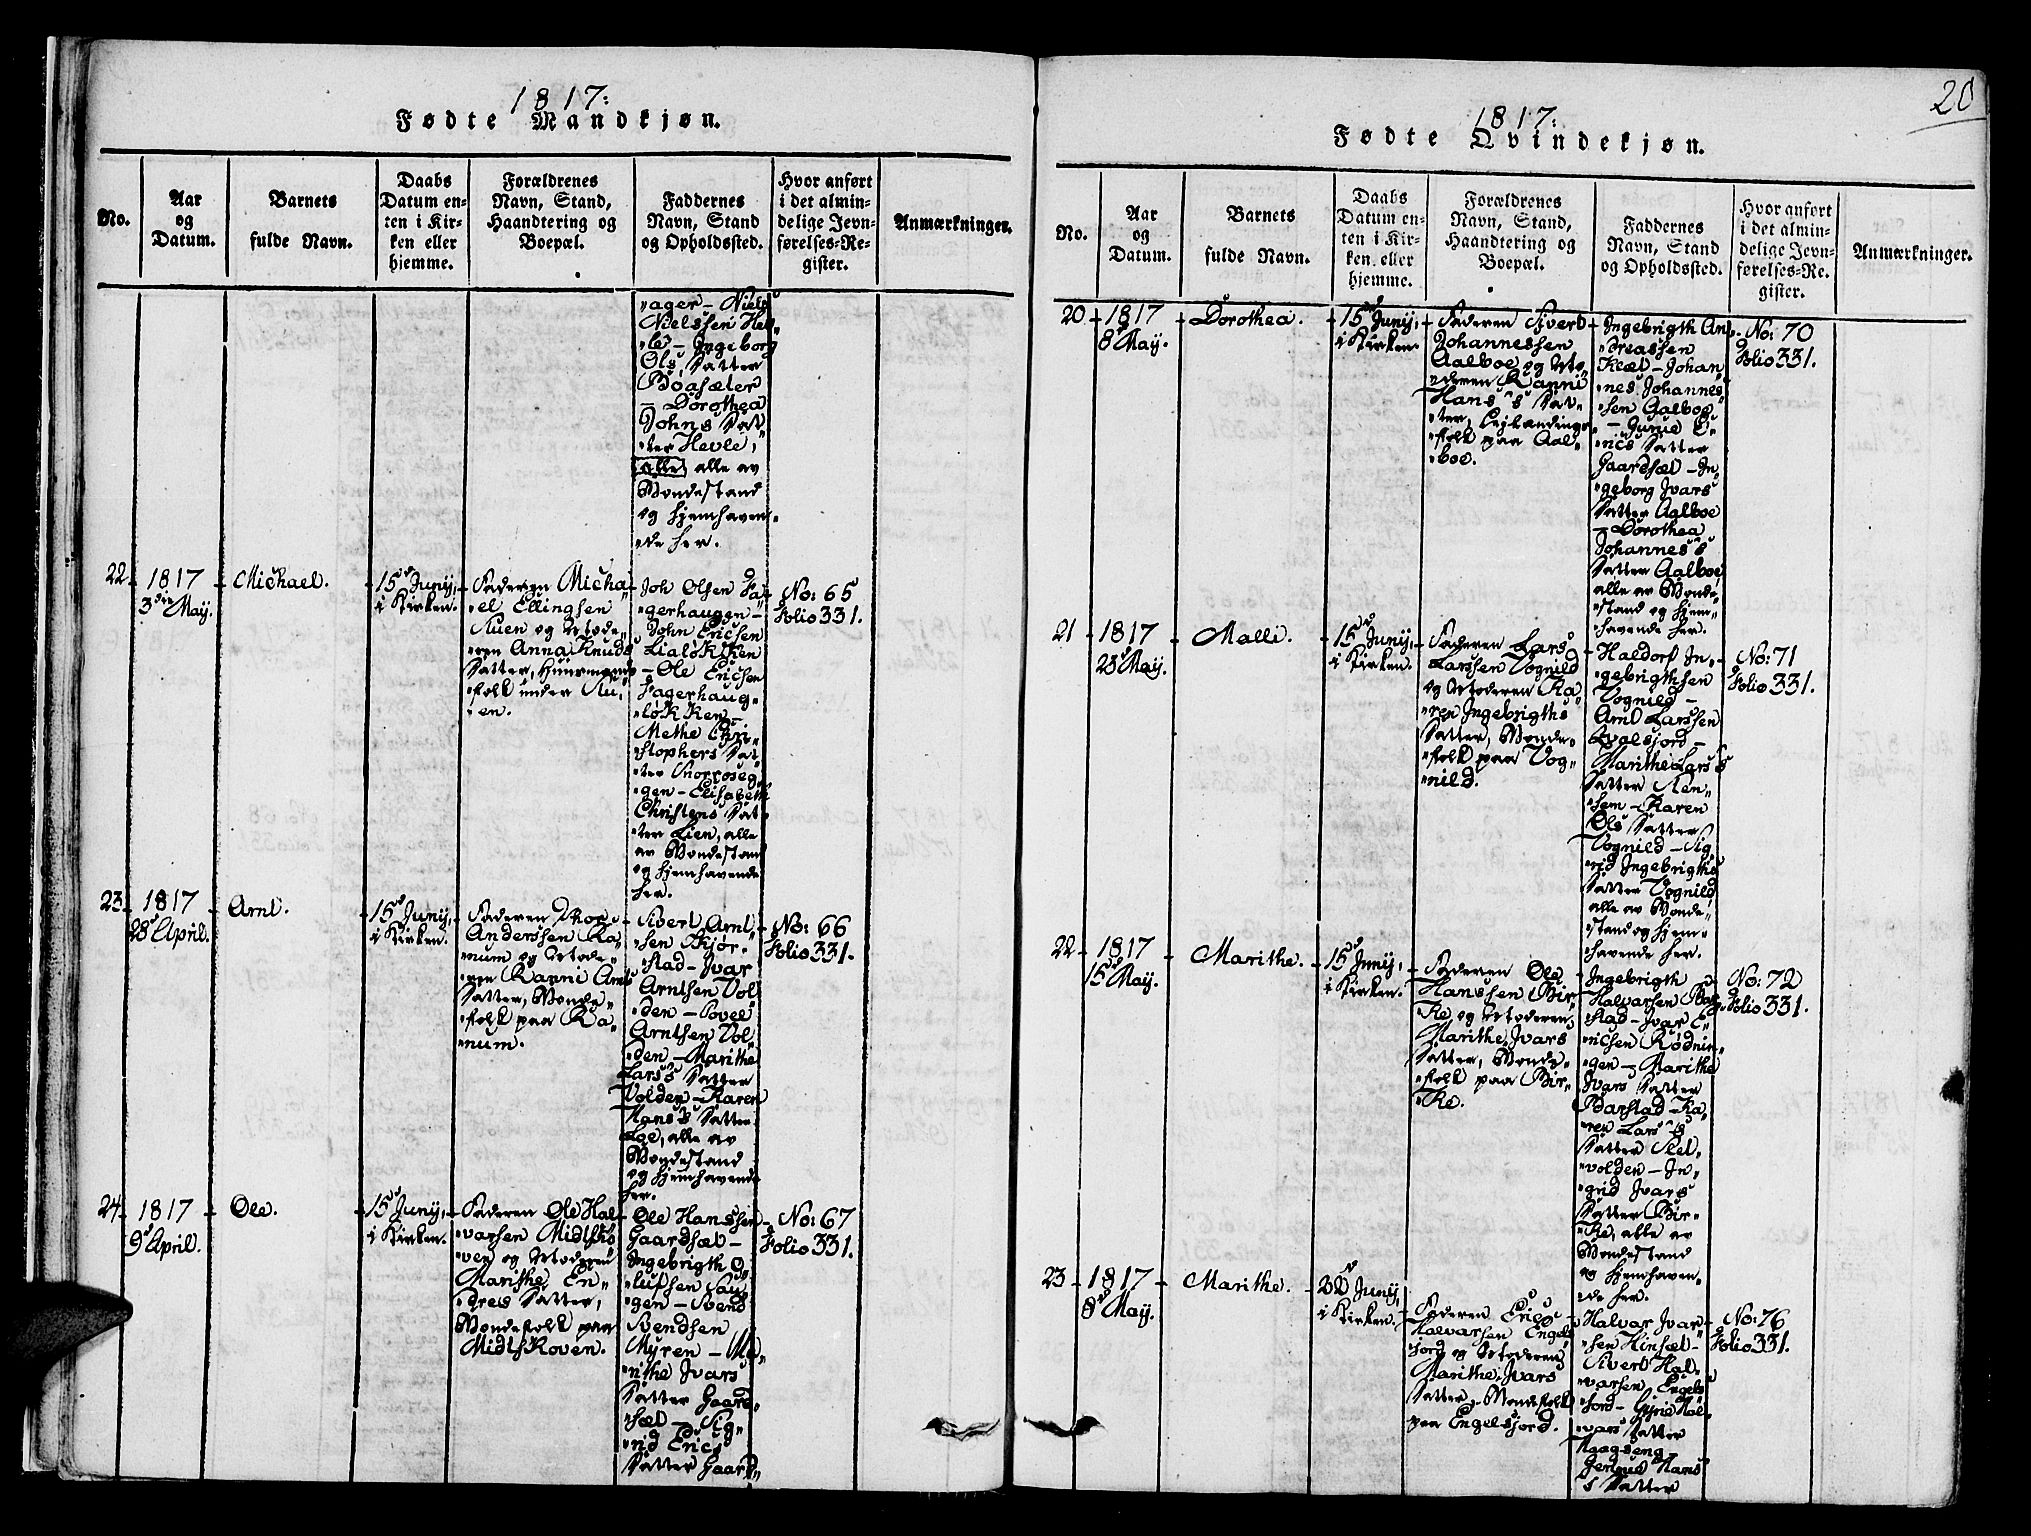 1817:
Fødte Mandkjøn.
No.
Aar
og
Datum.
Barnets
fulde Navn.
Daabs
Datum en-
ten i Kir-
ken eller
hjemme.
Forældrenes
Navn, Stand,
Haandtering og
Boepæl.
Faddernes
Navn, Stand
og Opholdssted.
Hvor anført
i det almin-
delige Jevn-
førelses-Re-
gister.
Anmærkninger.
"ager - Niels
Nielssen Hev-
"le - Ingeborg
Ols Datter
Boasæter
- Dorothea
Johns Dat-
"ter Hevle,
alle alle av
Bondestand
og hjemhaven-
"de her.
22.
1817
3die May.
Michael.
15d Junij,
i Kirken.
Faderen Micha-
"el Ellingsen
Auen og Mode-
"ren Anna Knuds
Datter, Huusmands
"folk under Au-
"en.
Joh Olsen Fa-
"gerhaugen -
John Ericsen
Lialøkken
- Ole Ericsen
Fagerhaug-
"løkken -
Methe Chri-
"stophers Dat-
"ter Snorroseg-
"gen - Elisabeth
Christens Dat-
"ter Lien, alle
av Bondestand
og hjemhavende
her.
No: 65
Folio 331.
23.
1817
28d April.
Arnt.
15d Junij,
i Kirken.
Faderen Thor
Anderssen Ra-
"num og Mode-
"ren Ranni Arnts
Datter, Bonde-
"folk paa Ra-
"num.
Sivert Arnt-
"sen Skjør-
"stad - Ivar
Arntsen Vol-
"den - Povel
Arntsen Vol-
"den - Marithe
Lars's Datter
Volden - Karen
Hans's Datter
Loe, alle av
Bondestand
og hjemhavende
her.
No: 66
Folio 331.
24.
1817
9d April.
Ole.
15d Junij,
i Kirken.
Faderen Ole Hal-
varsen Midtsko-
"ven og Moderen
Marithe En-
"dres Datter,
Bondefolk paa
Midtskoven.
Ole Hanssen
Gaardsæt -
Ingebrigth O-
"lufsen Haug-
"gen - Svend
Svendsen
Myren - Ma-
"rithe Ivars
Datter Gaard-
"sæt - Sig-
"rid Erics
Datter Gaard-
No: 67
Folio 331.
20
1817:
Fødte Qvindekjøn.
No.
Aar
og
Datum.
Barnets
fulde Navn.
Daabs
Datum en-
ten i Kir-
ken eller
hjemme.
Forældrenes
Navn, Stand,
Haandtering og
Boepæl.
Faddernes
Navn, Stand
og Opholdssted.
Hvor anført
i det almin-
delige Jevn-
førelses-Re-
gister.
Anmærkninger.
20
1817
8d May.
Dorothea.
15d Junij,
i Kirken.
Faderen Sivert
Johannessen
Aalboe og Mo-
"deren Ranni
Hans's Dat-
"ter, Leilændings-
"folk paa Aal-
"boe.
Ingebrigth An-
"dreassen
Kæel - Johan-
"nes Johannes-
"sen Aalboe
- Gurue E-
"rics Datter
Gaardsæt - In-
"geborg Ivars
Datter Aalboe
- Dorothea
Johannes's
Datter Aalboe
alle av Bonde-
"stand og hjem-
"havende her.
No: 70
Folio 331.
21
1817
23d May.
Malli.
15d Junij,
i Kirken.
Faderen Lars
Larssen Vognild
og Moderen Ka-
"ren Ingebrigths
Datter, Bonde-
"folk paa Vog-
"nild.
Haldor In-
"gebrigthsen
Vognild -
Arnt Larssen
Qvalsjord -
Marithe Lars's
Datter Ren-
"sem - Karen
Ols Datter
Vognild - Sig-
"rid Ingebrigths
Datter Vognild
alle av Bonde-
"stand og hjem-
"havende her.
No: 71
Folio 331.
22
1817
15d May.
Marithe.
15d Junij,
i Kirken.
Faderen Ole
Hanssen Bir-
"ke og Moderen
Marithe Ivars
Datter, Bonde-
"folk paa Bir-
"ke.
Ingebrigth
Halvarsen Bar-
"stad - Ivar E-
"ricsen Rødnin-
"gen - Marithe
Ivars Datter
Barstad - Ka-
"ren Lars's
Datter Stel-
"volden - In-
"grid Ivars
Datter Bir-
"ke, alle av
Bondestand
og hjemhaven-
"de her.
No: 72
Folio 331.
23
1817
8d May.
Marithe.
22d Junij,
i Kirken.
Faderen Eric
Halvarsen Engel-
"sjord og Moderen
Marithe Ivars
Datter, Bondefolk
paa Engelsjord.
Halvar Ivar-
"sen Hinsæt -
Sivert Hal-
"varsen Engel-
"sjord - Gjørie Hal-
"vars Datter
Haagseng
Gertrud Hans
's Datter
No: 76
Folio 331.